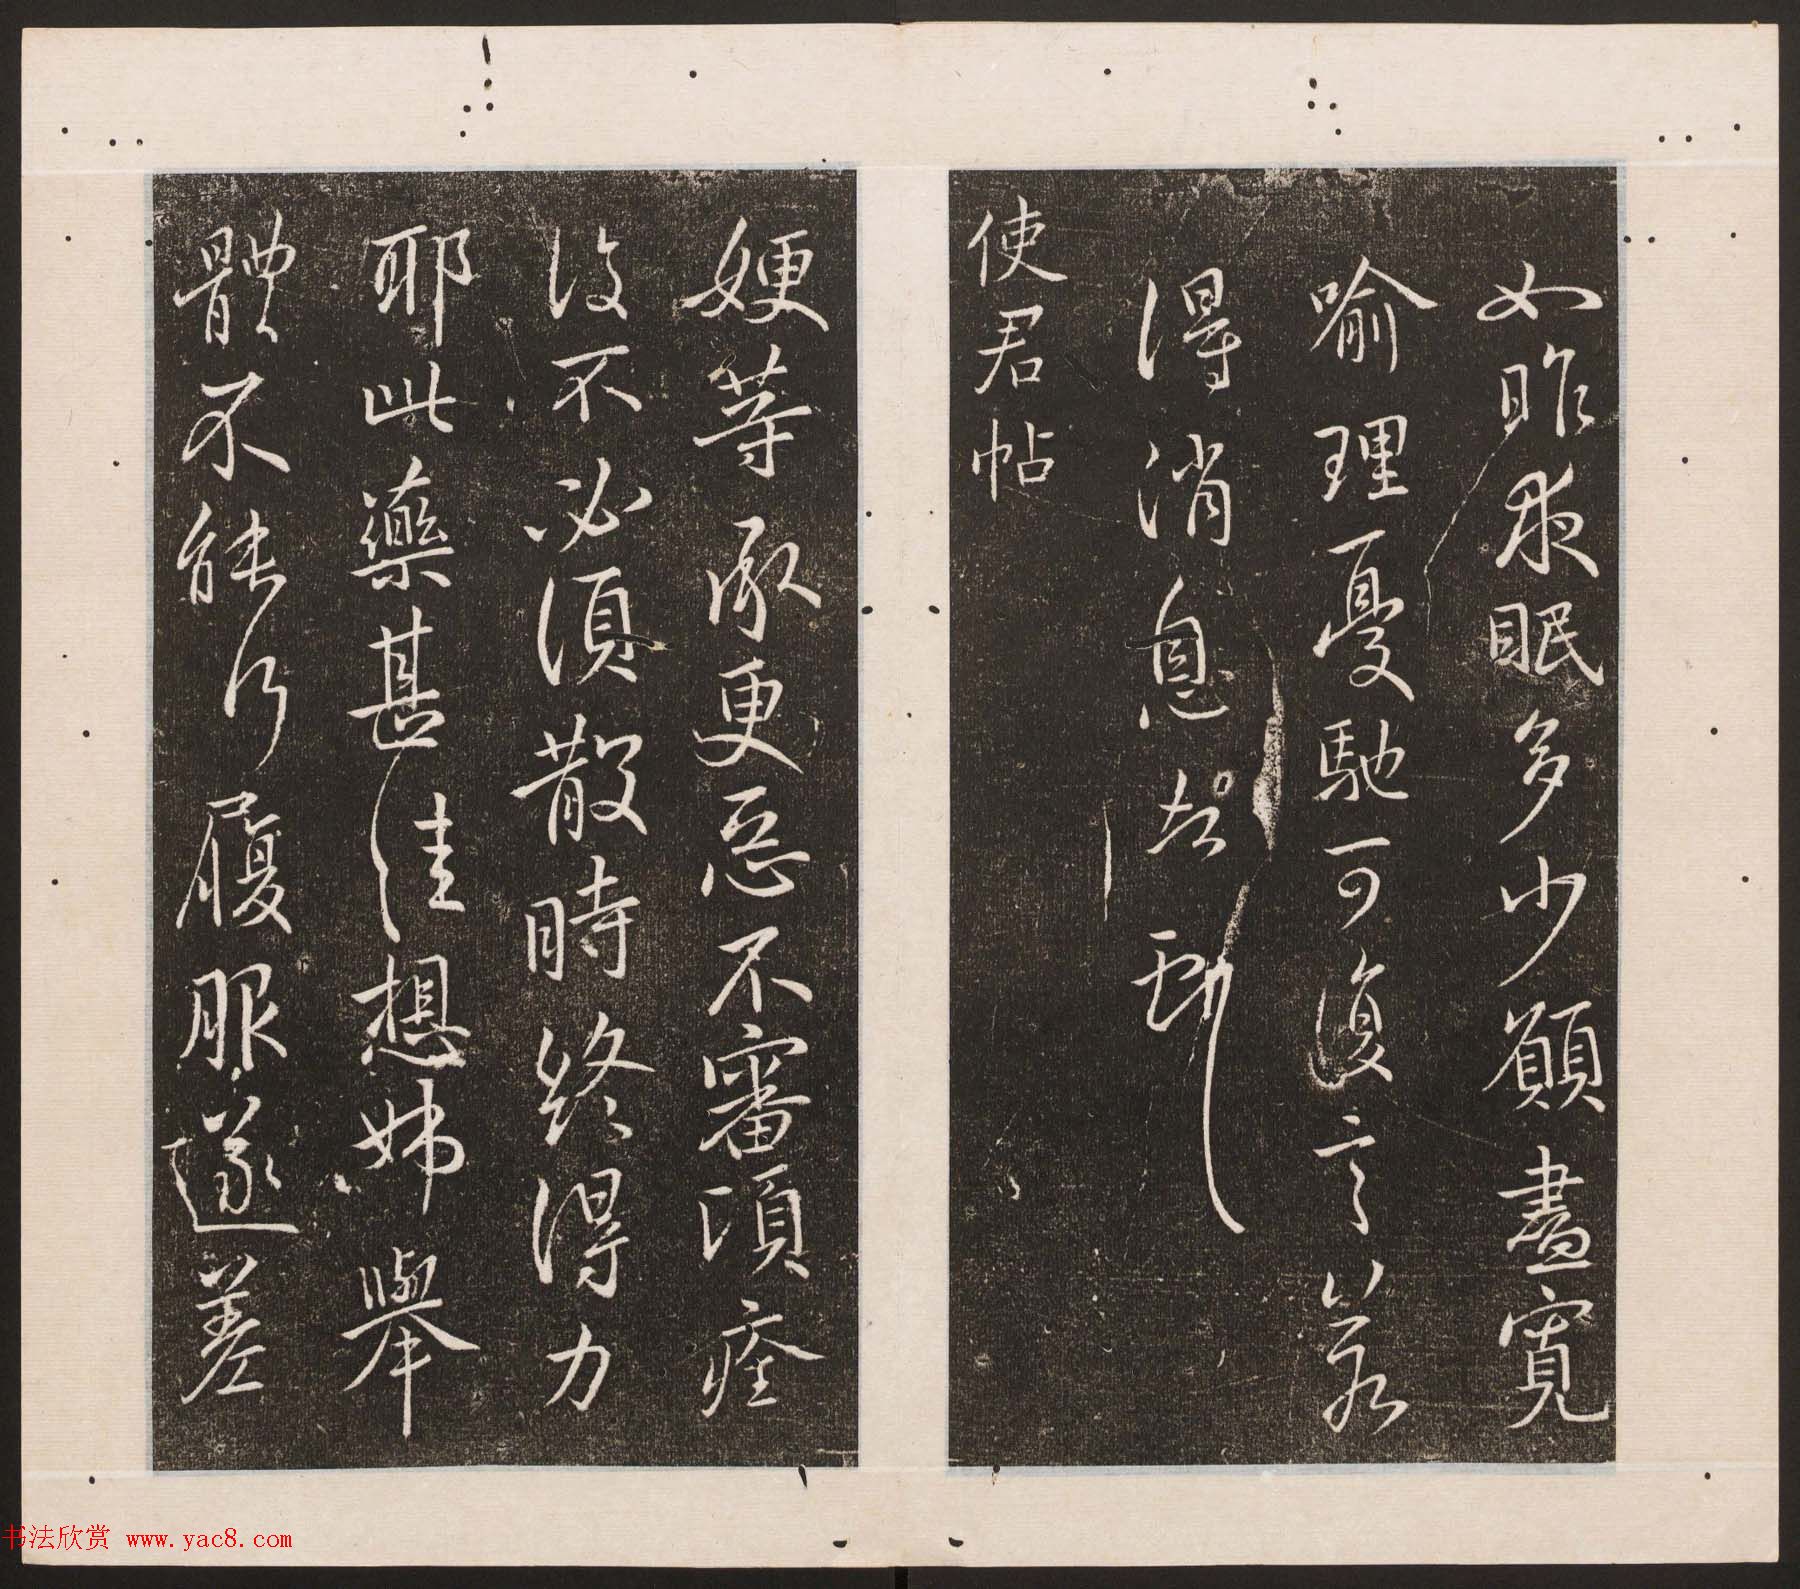 如昨夜眠多少願盡寬
喻理憂馳可復言若
得消息
使君帖
㛐等承更惡不審須痊
復不必須散時終得力
耶此藥甚佳想姊舉
體不能行履服遂差
书法欣赏 www.yac8.com